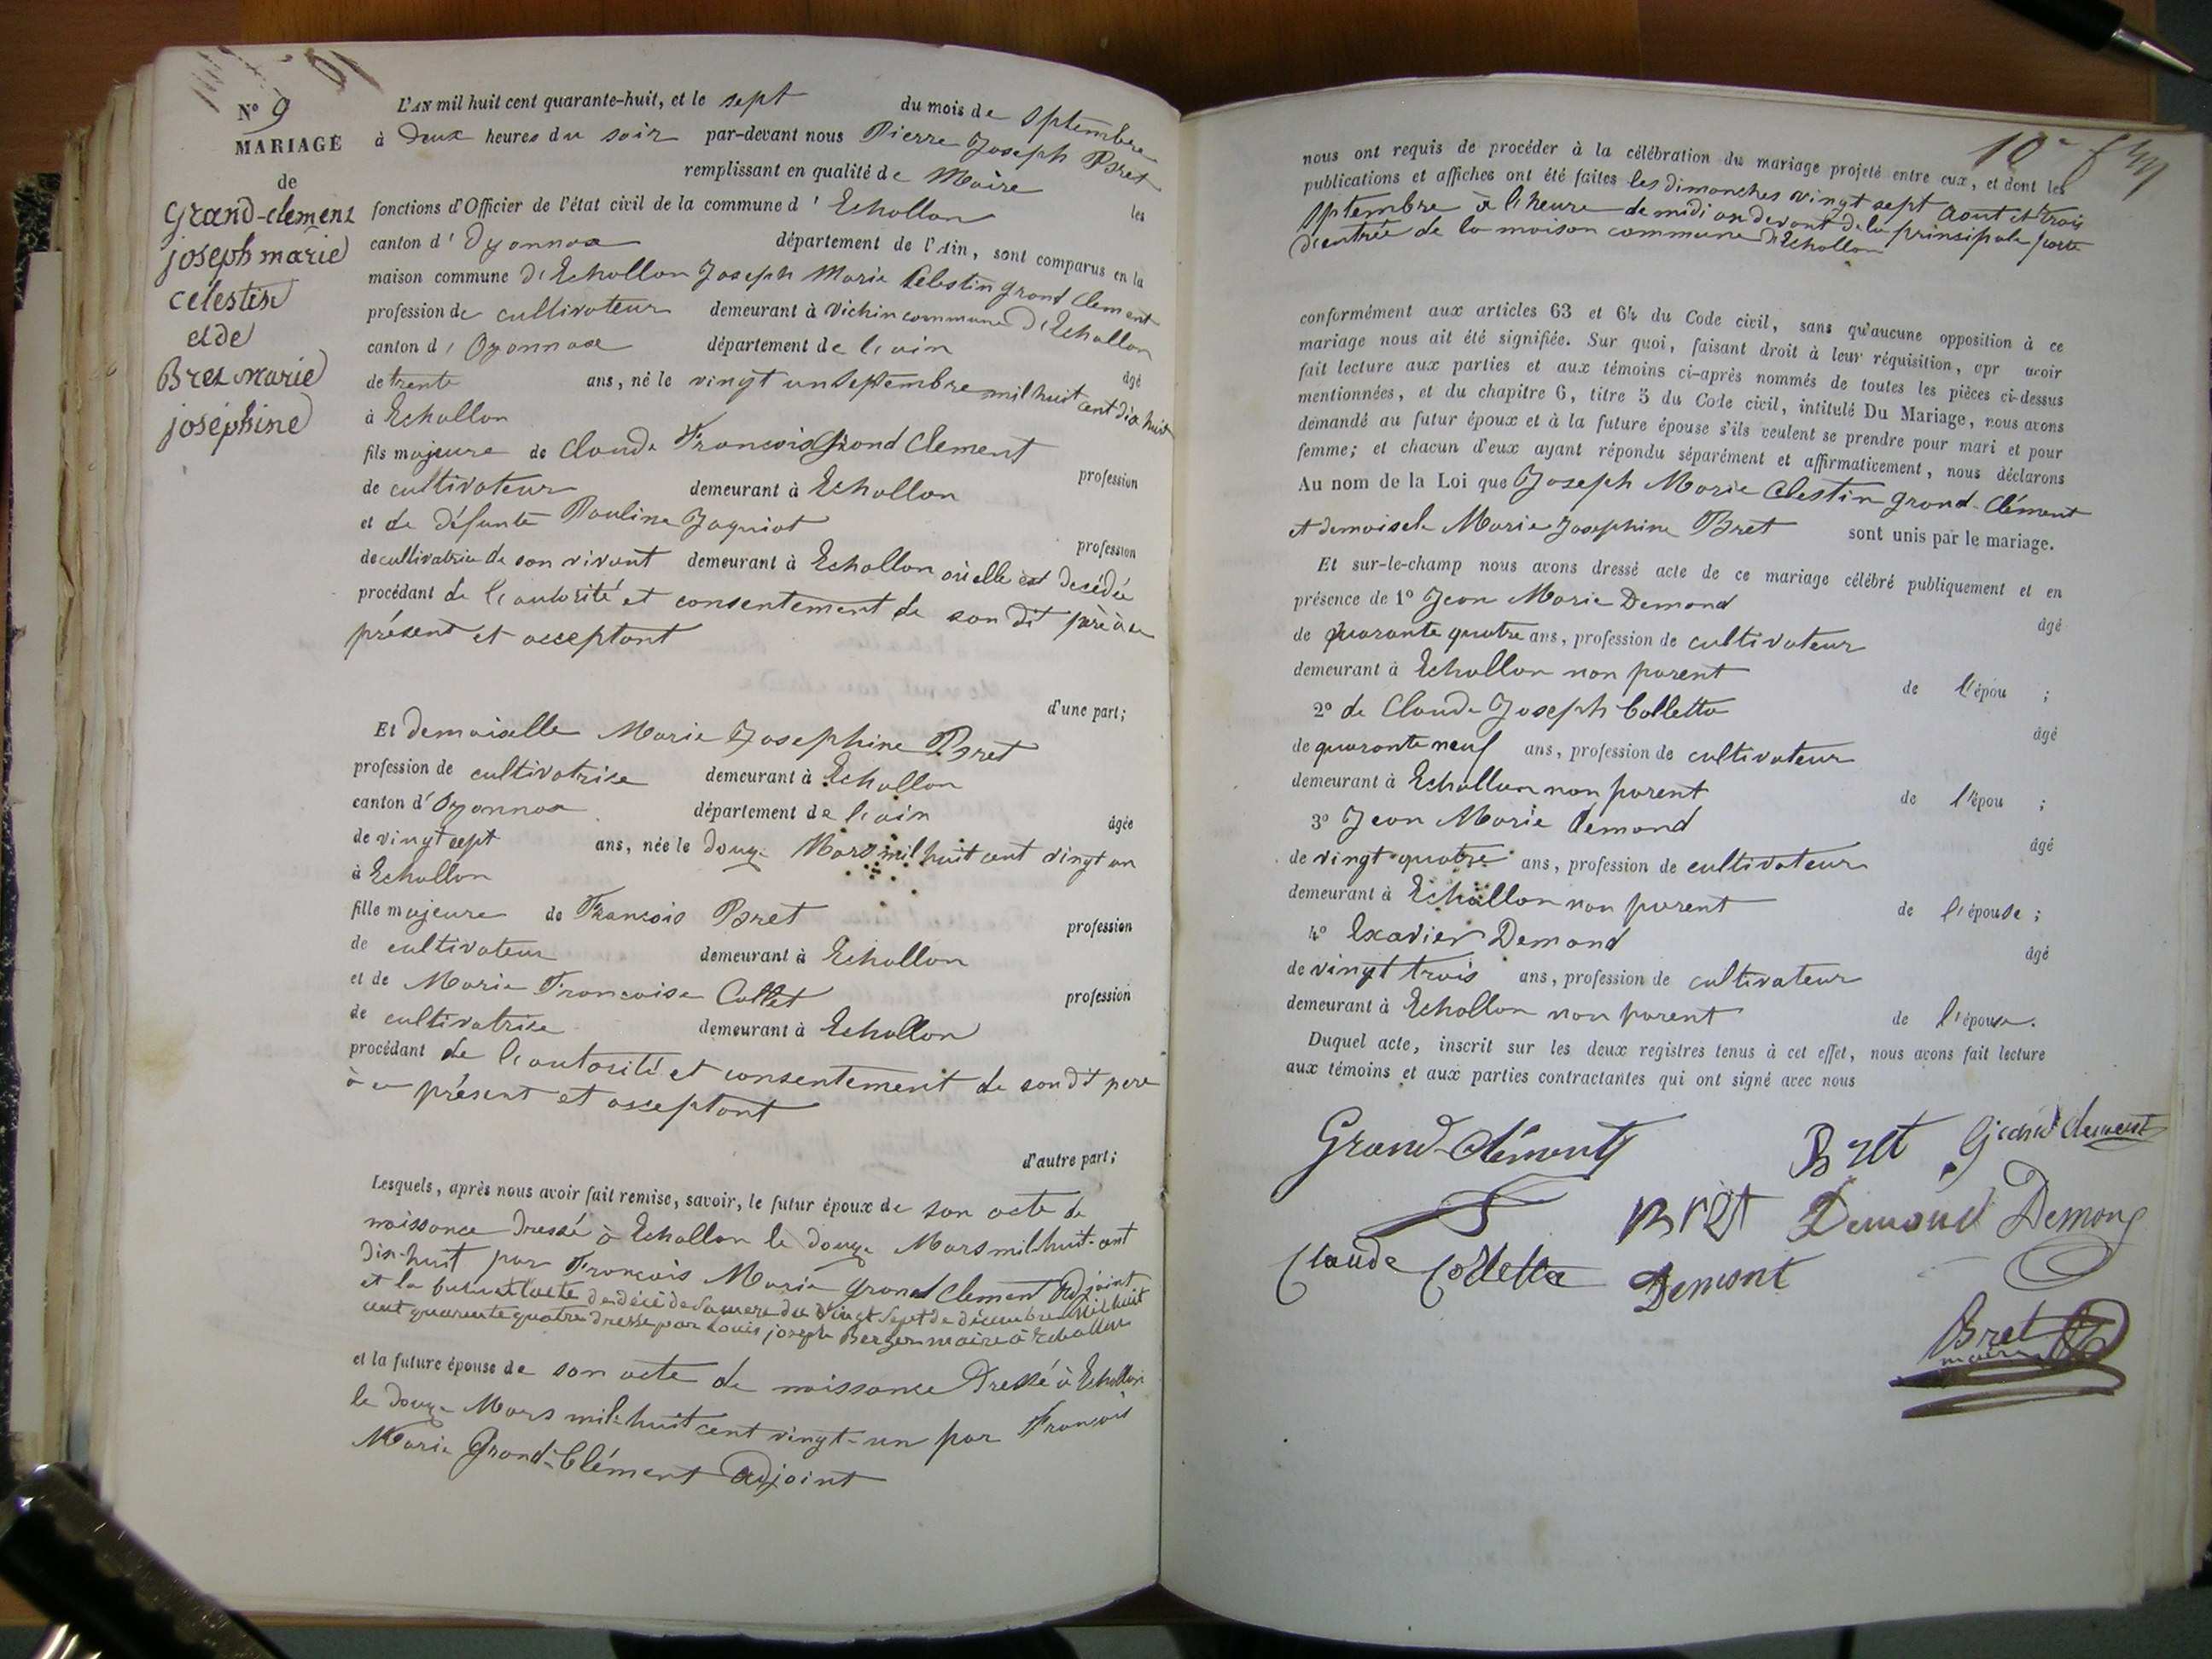 N° 9
MARIAGE
de
Grand-clement
joseph marie
celestin
et de
Bret marie
joséphine
L'AN mil huit cent quarante-huit, et le sept du mois de Septembre
à deux heures du soir par-devant nous Pierre Joseph Bret
remplissant en qualité de Maire les
fonctions d'Officier de l'état civil de la commune d'Echallon
canton d'Oyonnax département de l'Ain, sont comparus en la
maison commune d'Echallon Joseph Marie Celestin grand Clement
profession de cultivateur demeurant à Vichin commune d'Echallon
canton d'Oyonnax département de l'ain âgé
de trente ans, né le vingt un Septembre mil huit cent dix huit
à Echallon
fils majeure de Claude Francois Grand Clement profession
de cultivateur demeurant à Echallon
et de défunte Pauline Jaquiot profession
de cultivatrice de son vivant demeurant à Echallon où elle est decédée
procédant de l'autorité et consentement de son dit père à ce
présent et acceptant
d'une part;
Et demoiselle Marie Josephine Bret
profession de cultivatrise demeurant à Echallon
canton d'Oyonnax département de l'ain âgée
de vingt sept ans, née le douze Mars mil huit cent vingt un
à Echallon
fille majeure de Francois Bret profession
de cultivateur demeurant à Echallon
et de Marie Francoise Collet profession
de cultivatrise demeurant à Echallon
procédant de l'autorité et consentement de son dit pere
à ce présent et acceptant
d'autre part;
Lesquels, après nous avoir fait remise, savoir, le futur époux de son acte de
naissance dressé à Echallon le douze Mars mil-huit-cent
dix-huit par Francois Marie grand Clement Adjoint
et la l'acte de décé de sa mere du vingt sept de décembre mil huit
cent quarente quatre dressé par Louis joseph Berger maire à Echallon
et la future épouse de son acte de naissance dressé à Echallon
le douze Mars mil-huit cent vingt-un par Francois
Marie Grand-Clément adjoint
10e
nous ont requis de procéder à la célébration du mariage projeté entre eux, et dont les
publications et affiches ont été faites les dimanches vingt sept Aout et trois
Septembre à l'heure de midi au devant de la prinsipale porte
d'entrée de la maison commune d'Echallon
conformément aux articles 63 et 64 du Code civil, sans qu'aucune opposition à ce
mariage nous ait été signifiée. Sur quoi, faisant droit à leur réquisition, apr avoir
fait lecture aux parties et aux témoins ci-après nommés de toutes les pièces ci-dessus
mentionnées, et du chapitre 6, titre 5 du Code civil, intitulé Du Mariage, nous avons
demandé au futur époux et à la future épouse s'ils veulent se prendre pour mari et pour
femme; et chacun d'eux ayant répondu séparément et affirmativement, nous déclarons
Au nom de la Loi que Joseph Marie Celestin grand-Clément
et demoisele Marie Josephine Bret sont unis par le mariage.
Et sur-le-champ nous avons dressé acte de ce mariage célébré publiquement et en
présence de 1° Jean Marie Demond âgé
de quarante quatre ans, profession de cultivateur
demeurant à Echallon non parent de l'épou ;
2° de Claude Joseph Colletta âgé
de quarante neuf ans, profession de cultivateur
demeurant à Echallon non parent de l'épou ;
3° Jean Marie demond âgé
de vingt-quatre ans, profession de cultivateur
demeurant à Echallon non parent de l'épouse ;
4° Exavier Demond âgé
de vingt trois ans, profession de cultivateur
demeurant à Echallon non parent de l'épouse.
Duquel acte, inscrit sur les deux registres tenus à cet effet, nous avons fait lecture
aux témoins et aux parties contractantes qui ont signé avec nous
Grand-Clément Bret Grand Clement
Bret Demond Demond
Claude Colletta Demont
Bret
maire